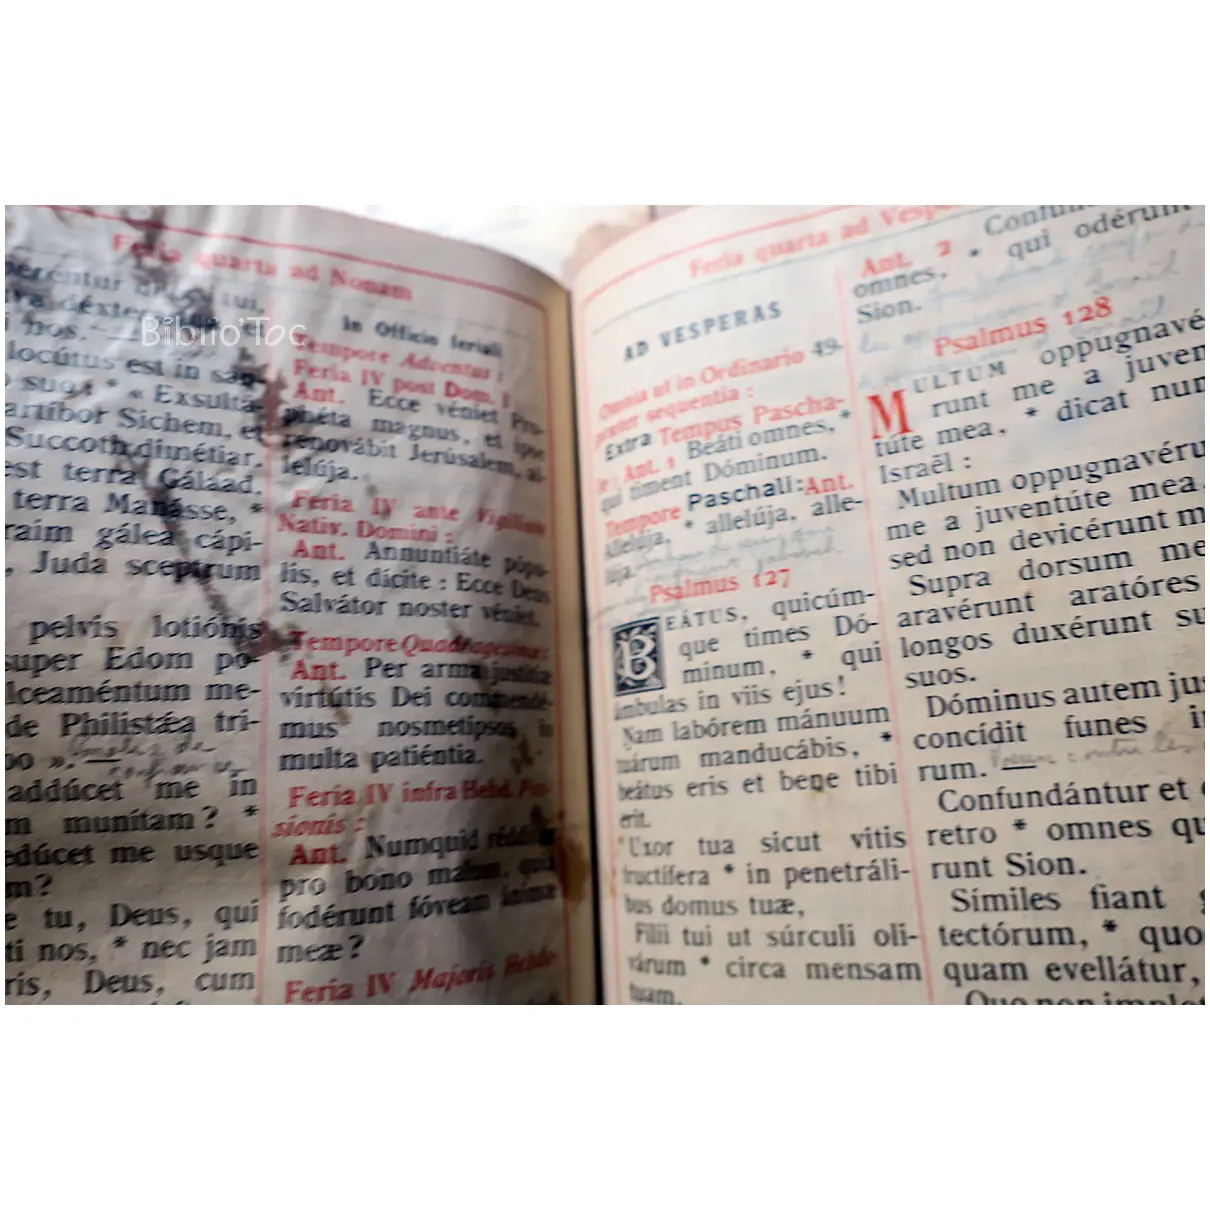 Feria quarta ad Nonam
tui,
déxtera
i nos.
locútus est in san-
o suos * « Exsultá-
artíbor Sichem, et
Succoth dimétiar.
est terra Gálaad,
terra Manásse, *
raim gálea cápi-
, Juda sceptrum
pelvis lotiónis
super Edom po-
lceaméntum me-
de Philistǽa tri-
bo ».
addúcet me in
m munítam? *
edúcet me usque
m?
e tu, Deus, qui
ti nos, * nec jam
ris, Deus, cum
Biblio'Toc
In Officio feriali
Tempore Adventus :
Feria IV post Dom. I
Ant. Ecce véniet Pro-
phéta magnus, et ipse
renovábit Jerúsalem, al-
lelúja.
Feria IV ante Vigiliam
Nativ. Domini :
Ant. Annuntiáte pópu-
lis, et dícite : Ecce Deus
Salvátor noster véniet.
Tempore Quadragesimæ :
Ant. Per arma justítiæ
virtútis Dei commendé-
mus nosmetípsos in
multa patiéntia.
Feria IV infra Hebd. Pas-
sionis :
Ant. Numquid rédditur
pro bono malum, quia
fodérunt fóveam ánimæ
meæ?
Feria IV Majoris Hebdo-
Feria quarta ad Vesperas
AD VESPERAS
Omnia ut in Ordinario 49-
præter sequentia :
Extra Tempus Pascha-
le : Ant. 1 Beáti omnes, *
qui timent Dóminum.
Tempore Paschali : Ant.
Allelúja, * allelúja, alle-
lúja.
Psalmus 127
BEÁTUS, quicúm-
que times Dó-
minum, * qui
ámbulas in viis ejus!
Nam labórem mánuum
tuárum manducábis, *
beátus eris et bene tibi
erit.
Uxor tua sicut vitis
fructífera * in penetráli-
bus domus tuæ,
Fílii tui ut súrculi oli-
várum * circa mensam
tuam.
Ant. 2
omnes, * qui odérunt
Sion.
Psalmus 128
MULTUM oppugnavé-
runt me a juven-
túte mea, * dicat nunc
Israël :
Multum oppugnavéru
me a juventúte mea,
sed non devicérunt m
Supra dorsum me
aravérunt aratóres
longos duxérunt su
suos.
Dóminus autem jus
concídit funes i
rum.
Confundántur et
retro * omnes qu
runt Sion.
Símiles fiant
tectórum, * quo
quam evellátur,
Quo non implet